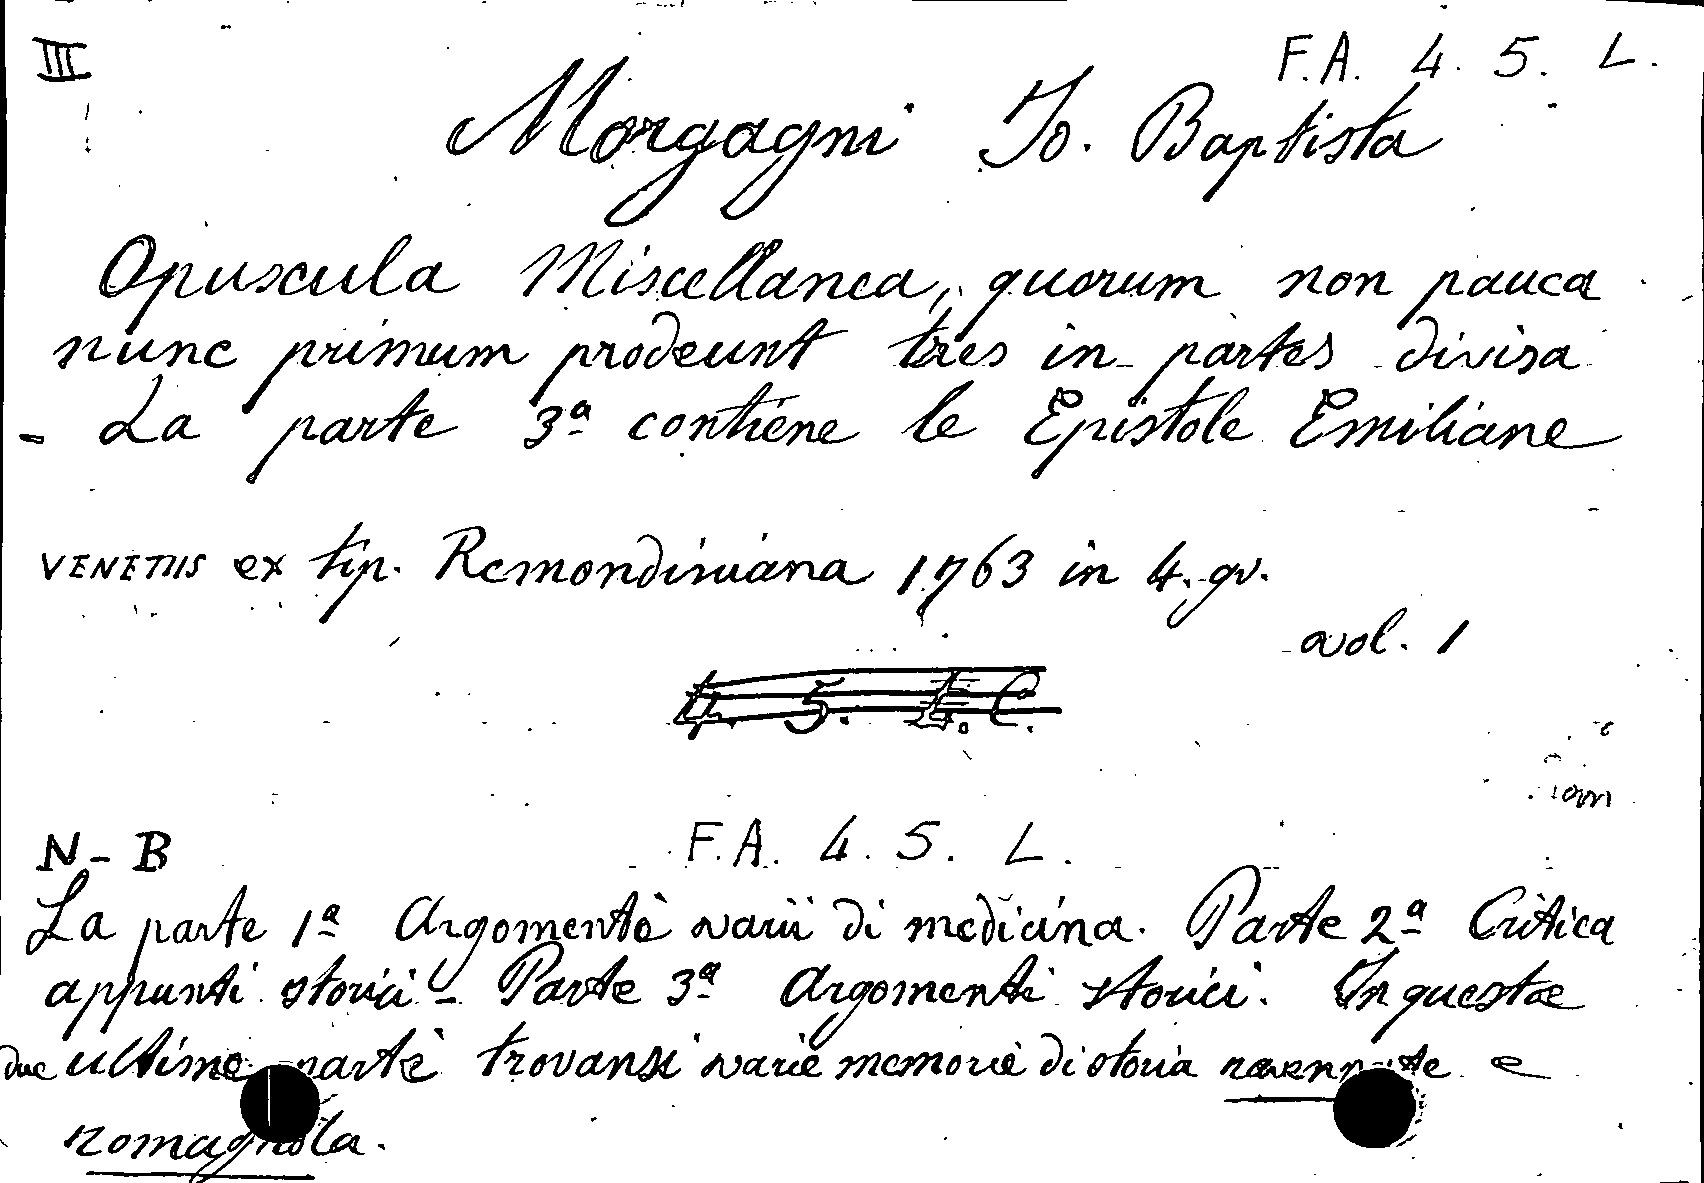 III
F.A. 4. 5. L.
Morgagni Jo. Baptista
Opuscula Miscellanea, quorum non pauca
nunc primum prodeunt tres in partes divisa
- La parte 3ª contiene le Epistole Emiliane
VENETIIS ex tip. Remondiniana 1763 in 4. gr.
vol. 1
4. 5. E. C.
N-B F.A. 4. 5. L.
La parte 1ª Argomenti varii di medicina. Parte 2ª Critica
appunti storici - Parte 3ª Argomenti storici. In queste
due ultime parti trovansi varie memorie di storia ravennate e
romagnola.